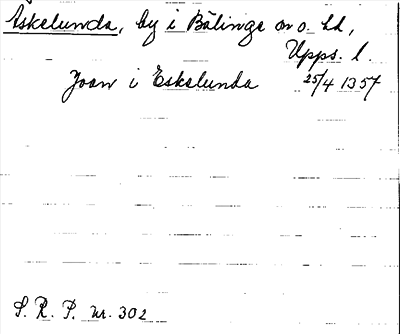 Äskelunda, by i Bälinge sn o. hd,
Upps. l.
Joan i Eskelunda 25/4 1357
S. R. P. nr. 302